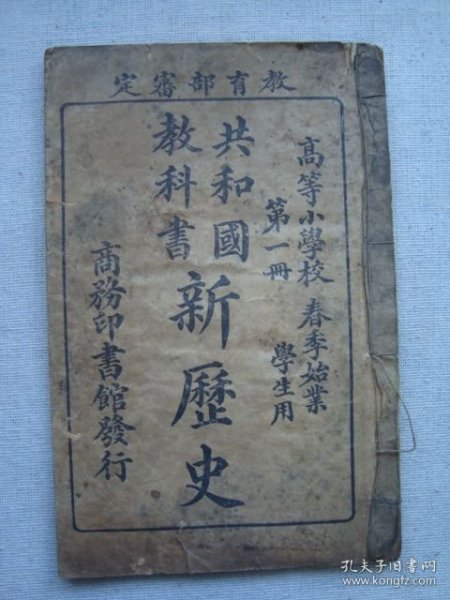 教育部審定
高等小學校 春季始業
第一冊 學生用
共和國
教科書
新歷史
商務印書館發行
孔夫子旧书网
www.kongfz.com